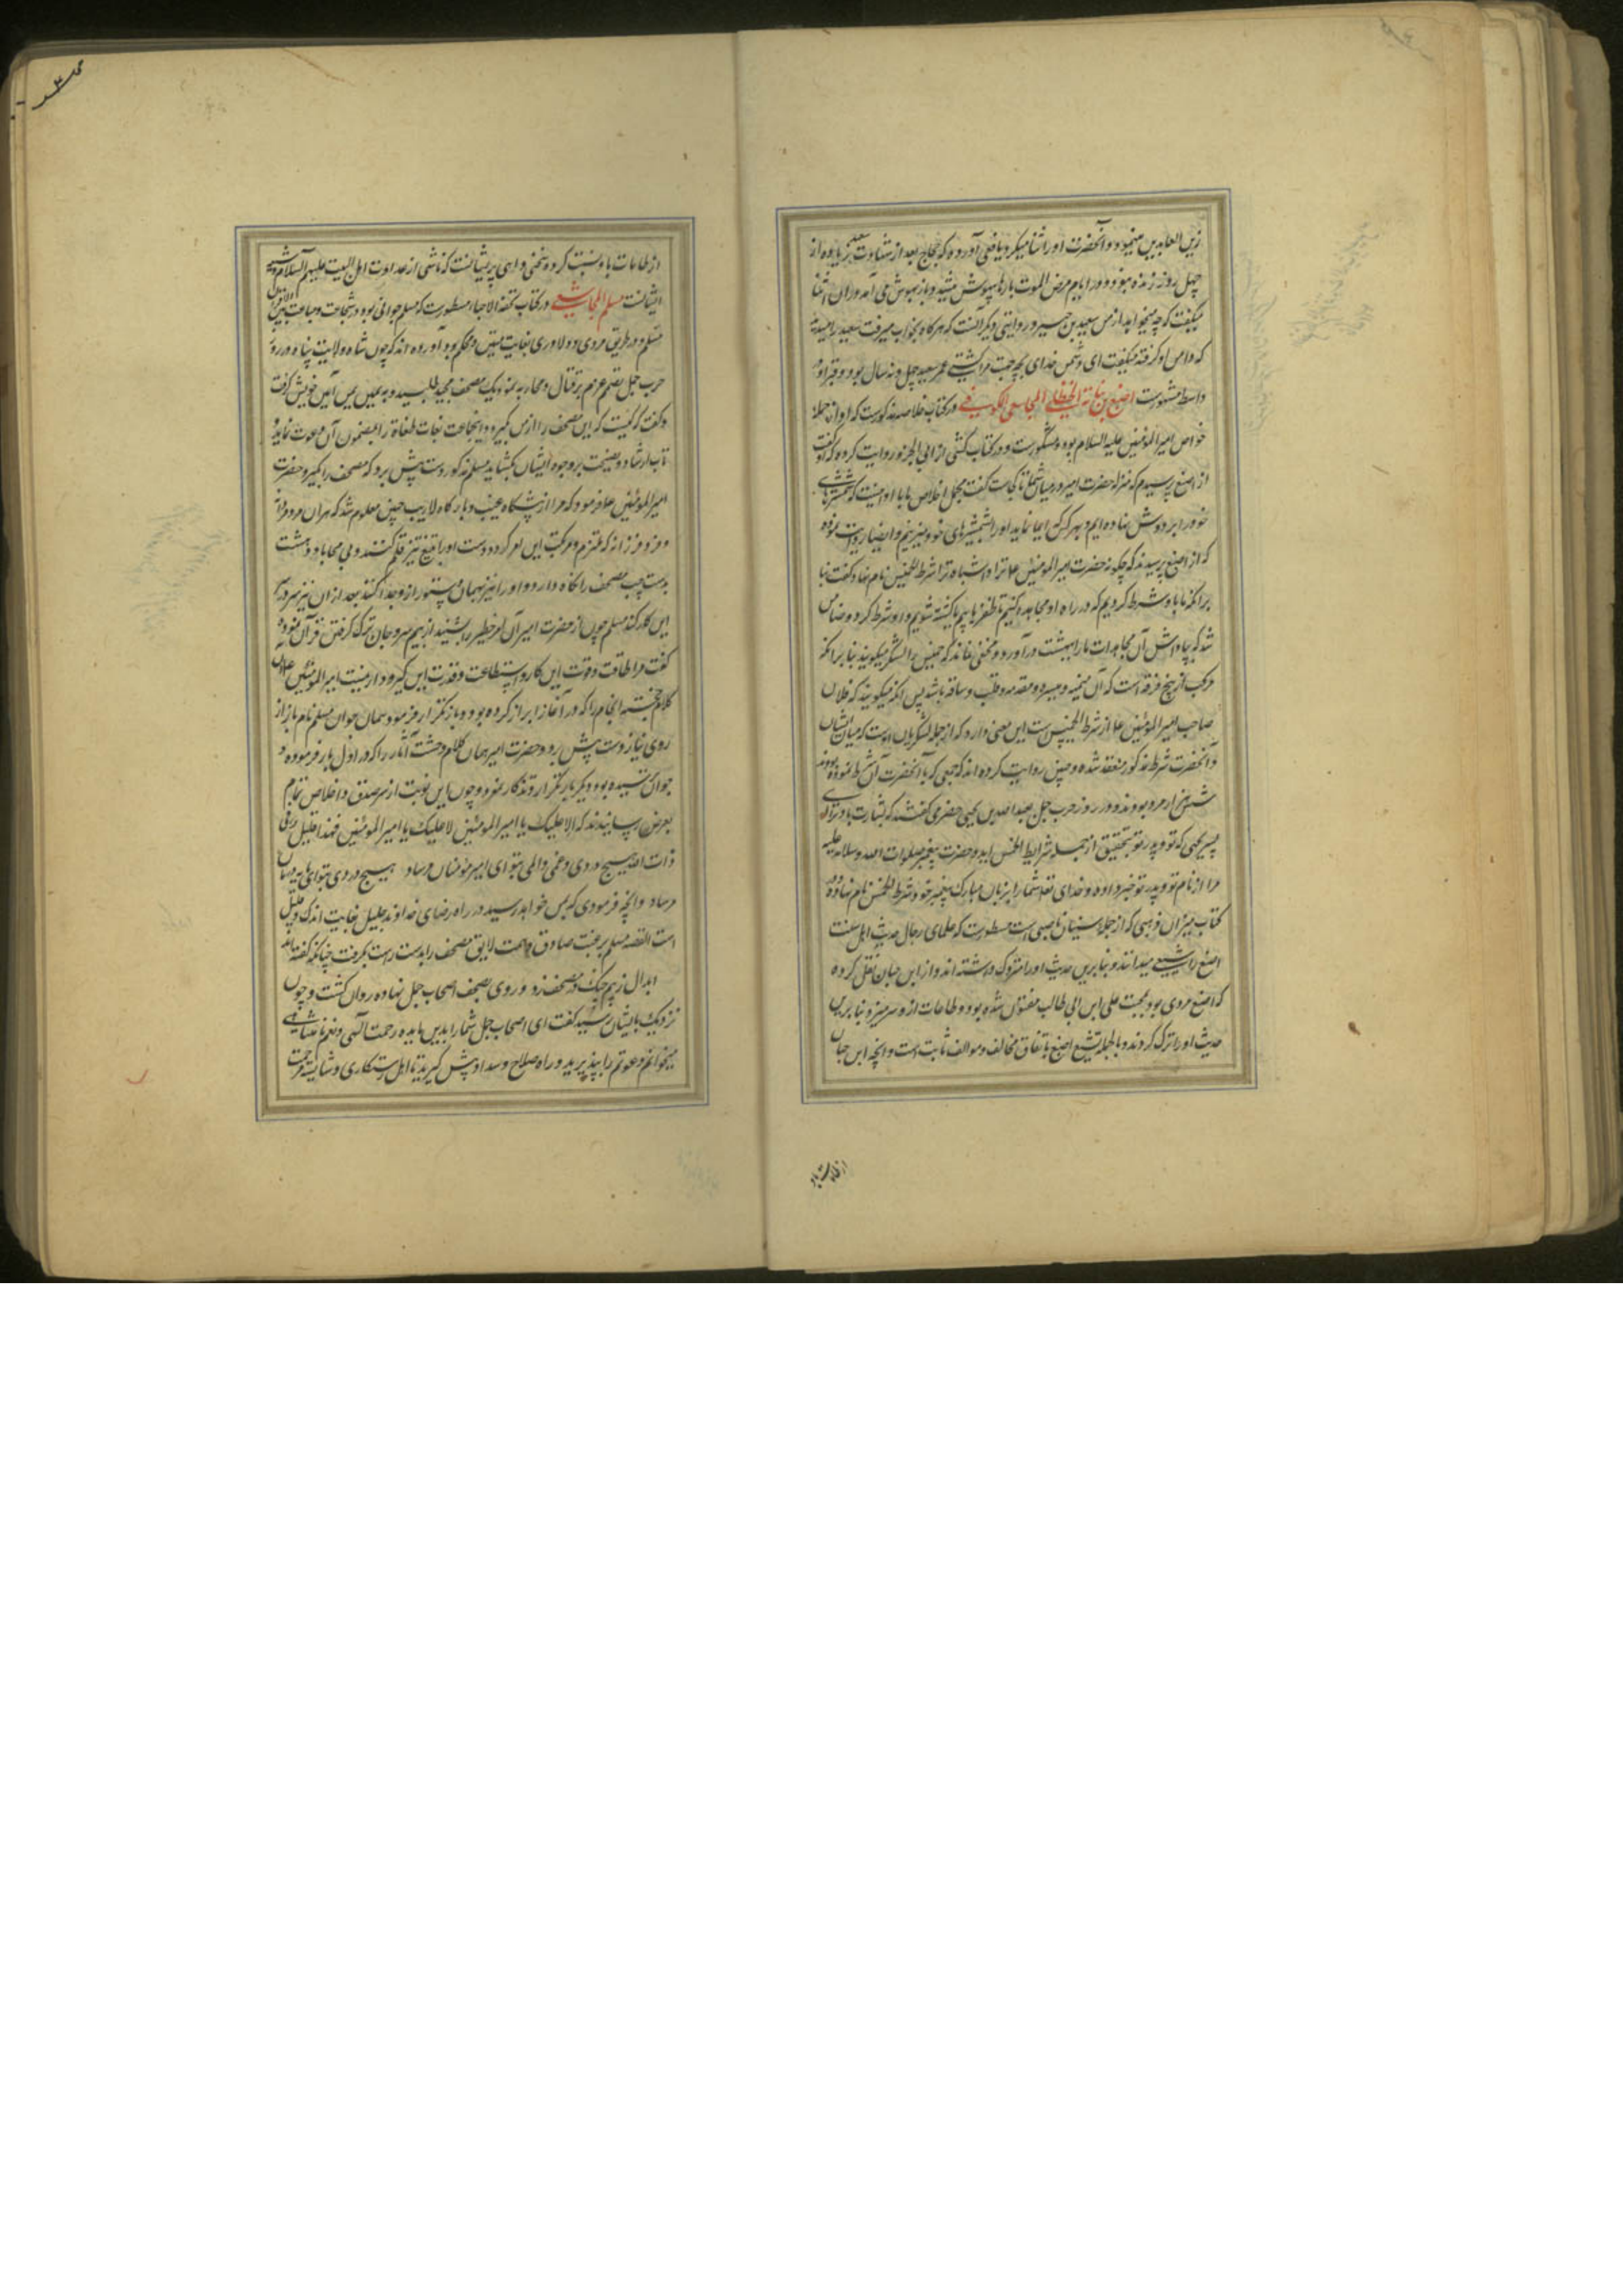 زین العابدین مینمود و آنحضرت او را ثنا میکرد یافعی آورده که حجاج بعد از شهادت سعید زیاده از
چهل روز زنده نبود و در ایام مرض الموت بارها بیهوش میشد و باز بهوش می آمد و در آن اثنا
میگفت که چه میخواهد از من سعید بن جبیر و در روایتی دیگر آنست که هرگاه بخواب میرفت سعید را میدید
که دامن او گرفته میگفت ای دشمن خدای بچه جهت مرا کشتی عمر سعید چهل و نه سال بود و قبر او در
واسط مشهورست اصبغ بن نباته الحنظلی المجاشعی الکوفی در کتاب خلاصه مذکورست که او از جمله
خواص امیر المؤمنین علیه السلام بود و مشکورست و در کتاب کشی از ابی الجارود روایت کرده که گفت
از اصبغ پرسیدم که منزله حضرت امیر در میان شما تا کجاست گفت مجمل اخلاص ما با او اینست که شمشیرهای
خود را بر دوش نهاده ایم و بهر کس که ایما نماید او را بشمشیرهای خود میزنیم و ایضا روایت نموده
که از اصبغ پرسیدند که چگونه حضرت امیر المؤمنین ع ترا و اشباه ترا شرطة الخمیس نام نهاد گفت بنا
بر آنکه ما با او شرط کردیم که در راه او مجاهده کنیم تا ظفر یابیم یا کشته شویم و او شرط کرد و ضامن
شد که بپاداش آن مجاهدات ما را ببهشت در آورد و مخفی نماند که خمیس را لشکر میگویند بنا بر آنکه
مرکب از پنج فرقه است که آن میمنه و میسره و مقدمه و قلب و ساقه باشد پس آنکه میگویند که فلان
صاحب امیر المؤمنین ع از شرطة الخمیس است این معنی دارد که از جمله لشکریان اوست که میان ایشان
و آنحضرت شرط مذکور منعقد شده و چنین روایت کرده اند که جمعی که با آنحضرت آن شرط نموده بودند
شش هزار مرد بودند و در روز حرب جمل بعبد الله بن یحیی حضرمی گفتند که بشارت باد ترا ای
پسر یحیی که تو و پدر تو بتحقیق از جمله شرایط الخمس اید و حضرت پیغمبر صلوات الله و سلامه علیه
مرا از نام تو و پدر تو خبر داده و خدای تعالی شما را بر زبان مبارک پیغمبر خود شرطة الخمس نام نهاده و در
کتاب میزان ذهبی که از جمله سنیان ناصبی است مسطورست که علمای رجال حدیث اهل سنت
اصبغ را شیعی میدانند و بنا برین حدیث او را متروک داشته اند و از ابن حبان نقل کرده
که اصبغ مردی بود بمحبت علی ابن ابی طالب مفتون شده بود و طامات از و سر میزد و بنا برین
حدیث او را ترک کردند و بالجمله تشیع اصبغ باتفاق مخالف و موالف ثابت است و آنچه ابن حبان
از طامات باو
از طامات باو نسبت کرده سخنی واهی پریشانست که ناشی از عداوت اهل البیت علیهم السلام و شیعه
ایشانست مسلم المجاشعی در کتاب تحفة الاحبا مسطورست که مسلم جوانی بود در شجاعت و جماعت بین الاقران
مسلم و در طریق مردی و دلاوری بغایت متین و محکم بود آورده اند که چون شاه ولایت پناه در روز
حرب جمل تصمیم عزم بر قتال و محاربه نمود یک مصحف مجید طلبید و بیمین یمن آئین خویش گرفت
و گفت که کیست که این مصحف را از من گیرد و اینجماعت بغات طغاة را بمضمون آن دعوت نماید و
باب ارشاد و نصیحت بر وجوه ایشان بگشاید مسلم مذکور دست پیش برد که مصحف را بگیرد حضرت
امیر المؤمنین ع فرمود که مرا از پیشگاه غیب و بارگاه لاریب چنین معلوم شد که هر آن مرد مردانه
و فرد فرزانه که ملتزم و مرتکب این امر گردد دست او را بتیغ تیز قلم کنند و بی محابا
بدست چپ مصحف را نگاه دارد و او را نیز بهمان دستور از و جدا کنند بعد از ان نیز سر در
این کار کند مسلم چون از حضرت امیر آن امر خطیر را بشنید از بیم سر و جان ترک گرفتن قرآن نمود و
گفت مرا طاقت و قوت این کار و استطاعت و قدرت این گیر و دار نیست امیر المؤمنین ع همان
کلام خجسته انجام را که در آغاز ابراز کرده بود و باز تکرار فرمود همان جوان مسلم نام باز از
روی نیاز دست پیش برد و حضرت امیر همان کلام وحشت آثار را که در اول بار فرموده و
جوان شنیده بود دیگر بار تکرار و تذکار نمود و چون این نوبت از سر صدق و اخلاص تمام
بعرض رسانیدند که الا علیک یا امیر المؤمنین لا علیک یا امیر المؤمنین فهذا قلیل فی
ذات الله هیچ دردی و غمی و المی بتو ای امیر مؤمنان مرساد هیچ دردی بتو ای
مرساد و آنچه فرمودی که بمن خواهد رسید در راه رضای خداوند جلیل بغایت اندک و قلیل
است القصه مسلم برغبت صادق و همت لایق مصحف را بدست راست بگرفت چنانکه گفته اند
ابدال ز بیم چنگ در مصحف زد و روی بصف اصحاب جمل نهاده روان گشت و چون
نزدیک بایشان رسید گفت ای اصحاب جمل شما را بدین مایده رحمت الهی و نعم نامتناهی
میخوانم دعوتم را بپذیرید و راه صلاح و سداد پیش گیرید تا اهل رستکاری و شایسته مرحمت